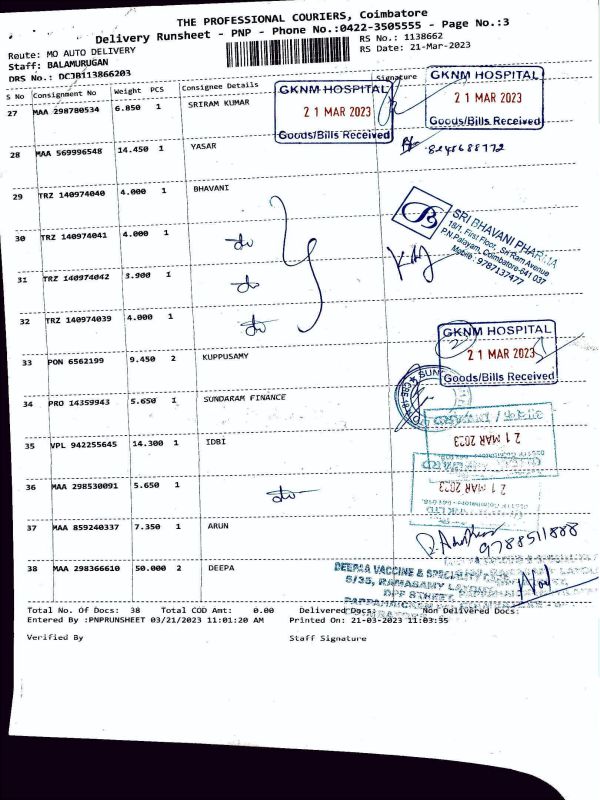 THE PROFESSIONAL COURIERS, Coimbatore
Delivery Runsheet - PNP - Phone No.:0422-3505555 - Page No.:3
Route: MO AUTO DELIVERY
RS No.: 1138662
Staff: BALAMURUGAN
RS Date: 21-Mar-2023
DRS No.: DCJB113866203
S No Consignment No Weight PCS Consignee Details Signature
27 MAA 298780534 6.850 1 SRIRAM KUMAR
GKNM HOSPITAL
21 MAR 2023
Goods/Bills Received
GKNM HOSPITAL
21 MAR 2023
Goods/Bills Received
28 MAA 569996548 14.450 1 YASAR
29 TRZ 140974040 4.000 1 BHAVANI
SRI BHAVANI PHARMA
18/1, First Floor, Sri Ram Avenue
P.N.Palayam, Coimbatore-641 037
Mobile : 9787137477
30 TRZ 140974041 4.000 1 do
31 TRZ 140974042 3.900 1 do
32 TRZ 140974039 4.000 1 do
33 PON 6562199 9.450 2 KUPPUSAMY
GKNM HOSPITAL
2
21 MAR 2023
Goods/Bills Received
34 PRO 14359943 5.650 1 SUNDARAM FINANCE
35 VPL 942255645 14.300 1 IDBI
21 MAR 2023
36 MAA 298530091 5.650 1 do
21 MAR 2023
37 MAA 859240337 7.350 1 ARUN
9788511888
38 MAA 298366610 50.000 2 DEEPA
DEEPAA VACCINE & SPECIALITY
5/35, RAMASAMY
DPF STREET,
Total No. Of Docs: 38 Total COD Amt: 0.00 Delivered Docs: Non Delivered Docs:
Entered By :PNPRUNSHEET 03/21/2023 11:01:20 AM Printed On: 21-03-2023 11:03:35
Verified By Staff Signature